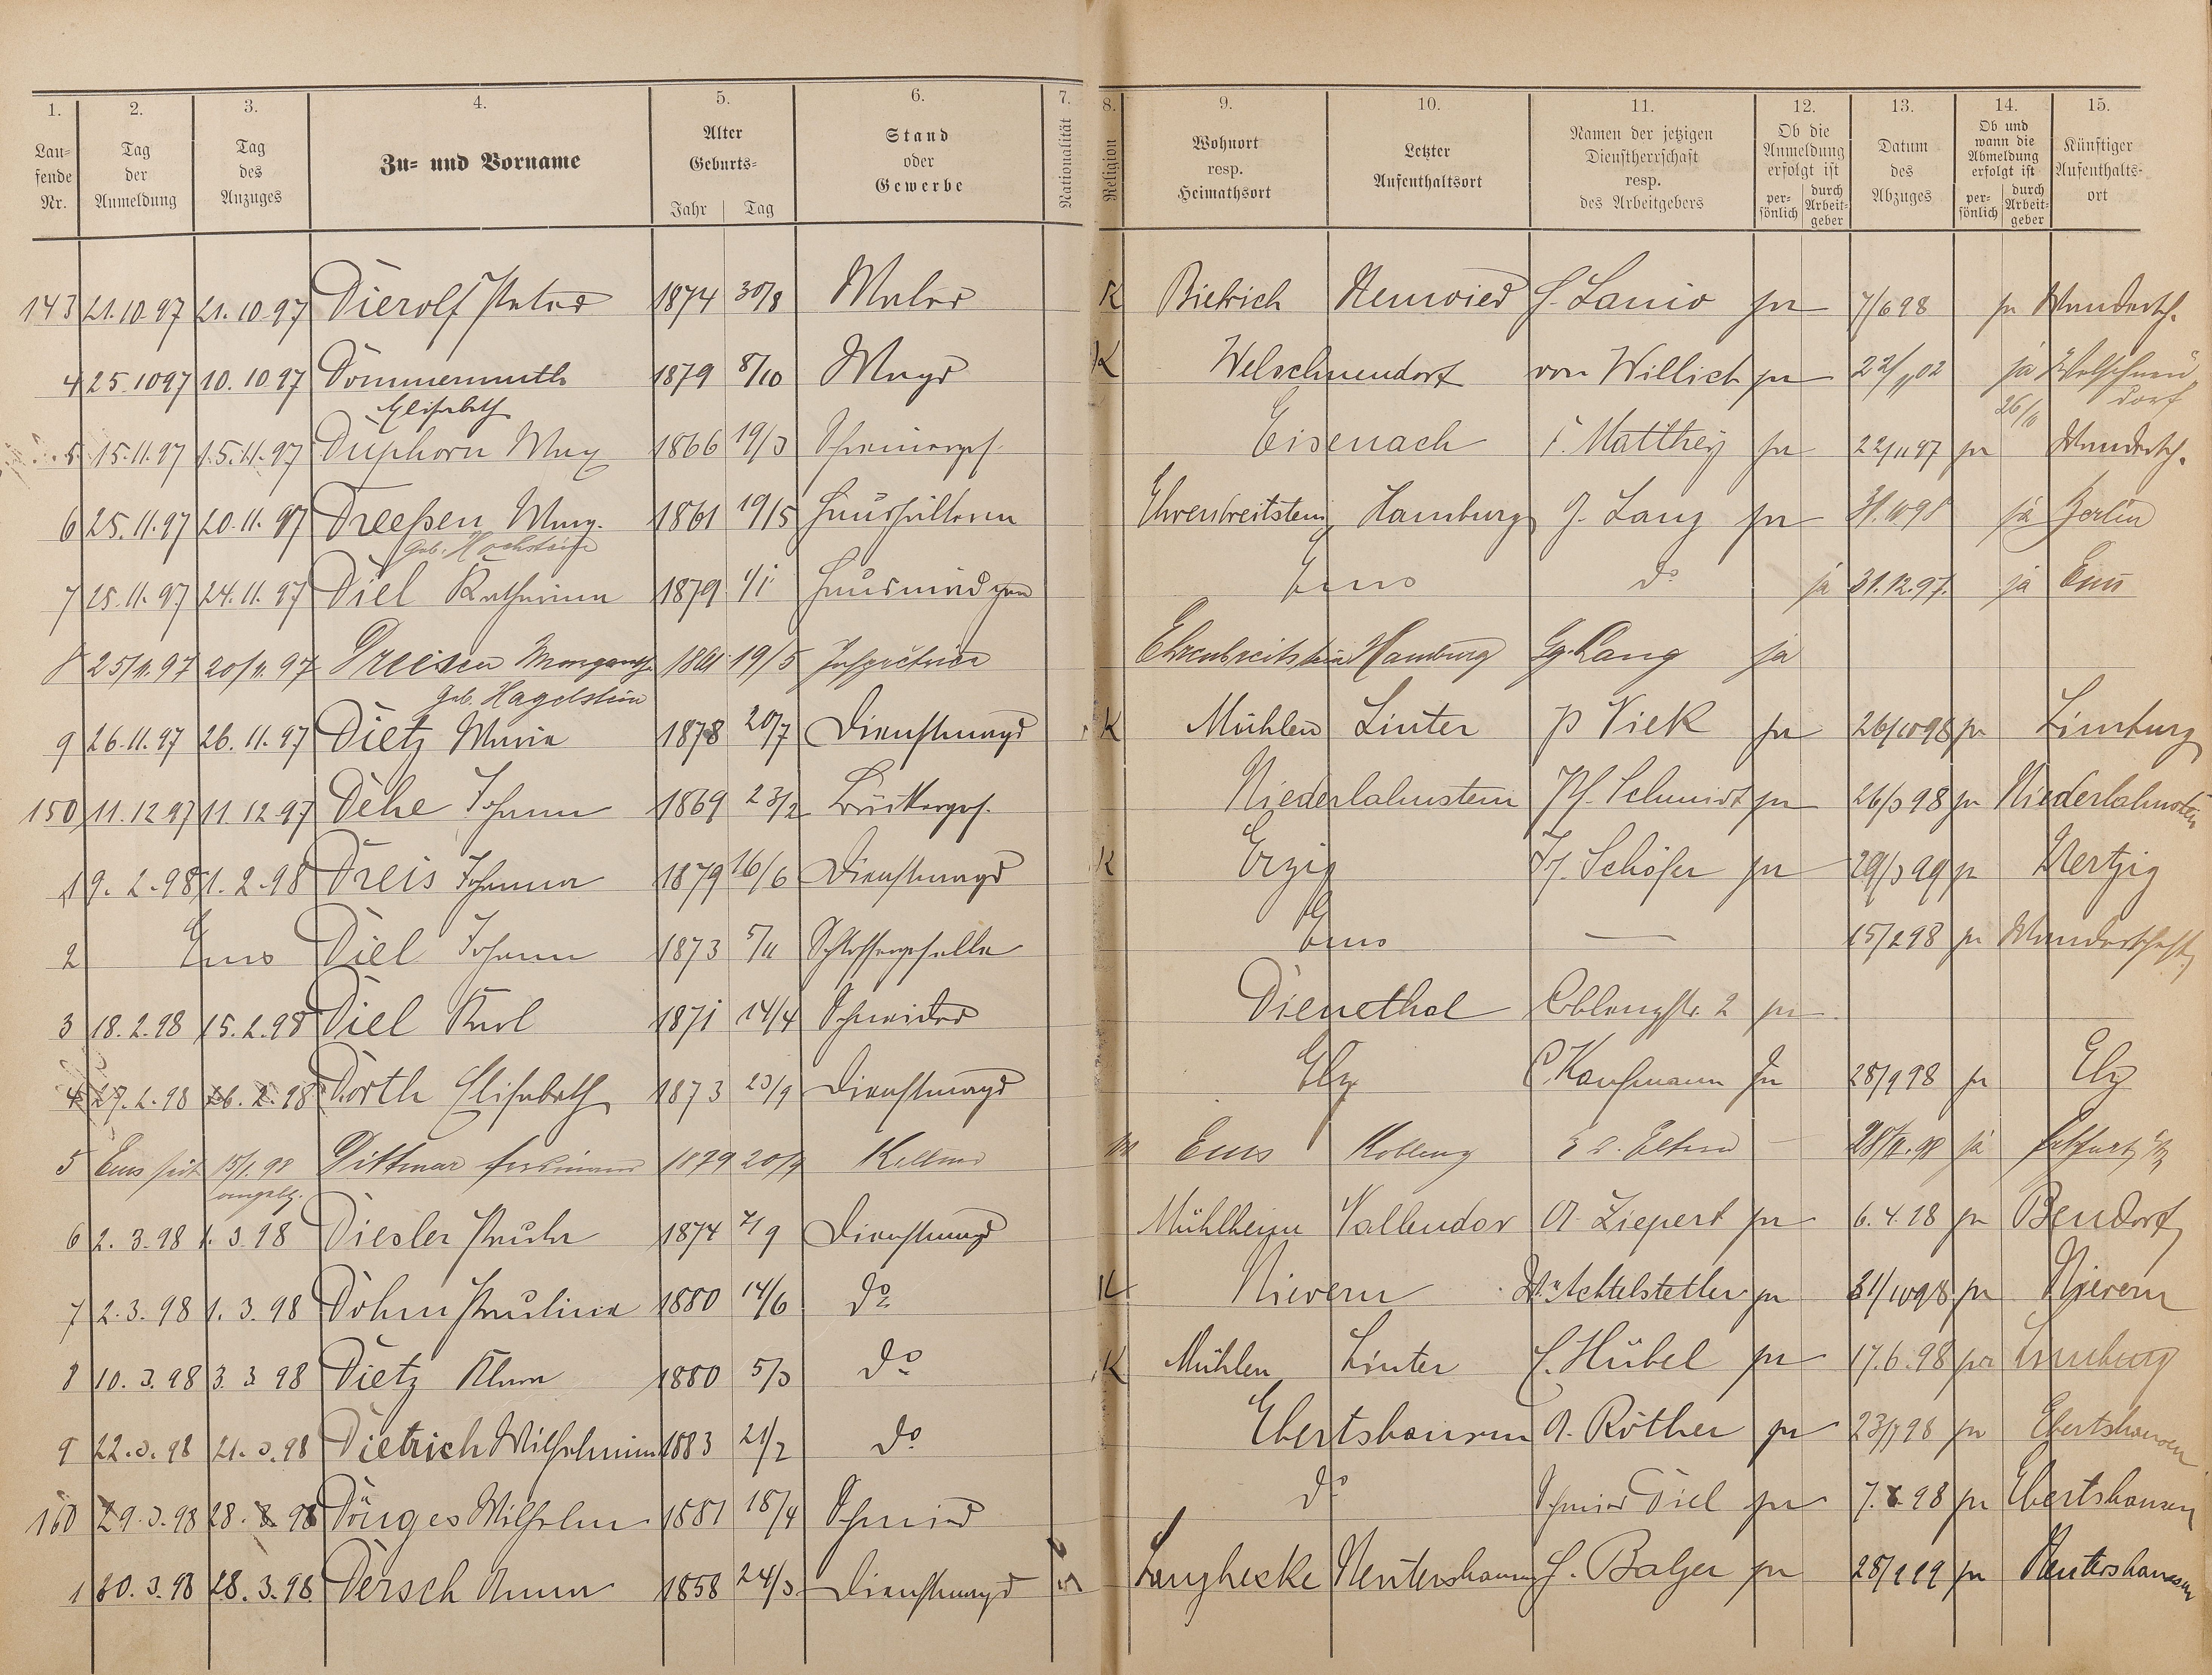 1. 2. 3. 4. 5. 6. 7. 8. 9. 10. 11. 12. 13. 14. 15.
Laufende Nr. Tag der Anmeldung Tag des Anzuges Zu- und Vorname Alter Geburts- Jahr Tag Stand oder Gewerbe Nationalität Religion Wohnort resp. Heimathsort Letzter Aufenthaltsort Namen der jetzigen Dienstherrschaft resp. des Arbeitgebers Ob die Anmeldung erfolgt ist persönlich durch Arbeitgeber Datum des Abzuges Ob und wann die Abmeldung erfolgt ist persönlich durch Arbeitgeber Künftiger Aufenthaltsort
143 21.10.97 21.10.97 Dierolf Peter 1874 30/8 Maler K Biebrich Neuwied J. Lanio ja 7/6 98 ja Wandersch.
4 25.10 97 10.10.97 Dommermuth 1879 8/10 Magd K Welschneudorf von Willich ja 22/11 02 ja Welschneu
Elisabeth 26/11 dorf
5 15.11.97 15.11.97 Duphorn Max 1866 19/3 Schreinerges. Eisenach F. Matthey ja 22/11 97 ja Wandersch.
6 25.11.97 20.11.97 Dreeßen Marg. 1861 19/5 Haushälterin Ehrenbreitstein Hamburg G. Lang ja 31.10 98 ja Berlin
geb. Hochstein
7 25.11.97 24.11.97 Diel Katharina 1879 1/1 Hausmädchen Ems do ja 31.12.97. ja Ems
8 25/11.97 20/11.97 Dreisen Margareth 1861 19/5 Ehrenbreitstein Hamburg Gg. Lang ja
geb. Hagelstein
9 26.11.97 26.11.97 Dietz Maria 1878 20/7 Dienstmagd K Mühlen Linter P Viek ja 26/10 98 ja Limburg
150 11.12 97 11.12.97 Dehe Johann 1869 23/2 Bäckerges. Niederlahnstein Ph. Schmidt ja 26/3 98 ja Niederlahnstein
1 9. 2.98 1.2.98 Dreis Johanna 1879 16/6 Dienstmagd K Erzig Jos. Schöfer ja 29/3 99 ja Mertzig
2 Ems Diel Johann 1873 5/11 Schlossergeselle Ems — 15/2 98 ja Wanderschaft
3 18.2.98 15.2.98 Diel Karl 1871 14/4 Schneider Dienethal Coblenzstr. 2 ja
4 27.2.98 26.2.98 Dorth Elisabeth 1873 23/9 Dienstmagd Elz C. Kaufmann Ja 28/9 98 ja Elz
5 Ems seit 15/1.98 Dittmar Ferdinand 1879 20/9 Kellner Ems Koblenz z. d. Eltern — ja
angebl.
6 2.3.98 1.3.98 Diesler Paula 1874 7/9 Dienstmagd Mühlheim Vallendar A. Ziepert ja 6.4.98 ja Bendorf
7 2.3.98 1.3.98 Dohm Paulina 1880 14/6 do K Nievern Achtelstetter ja 31/10 98 ja Nievern
8 10.3.98 3.3 98 Dietz Klara 1880 5/3 do K Mühlen Linter C. Hübel ja 17.6.98 ja Limburg
9 22.3.98 21.3.98 Dietrich Wilhelmine 1883 21/2 do Ebertshausen A. Röther ja ja Ebertshausen
160 29.3.98 28.3.98 Dönges Wilhelm 1881 18/4 Schmied do Schmied Diel ja ja Ebertshausen
1 30.3.98 28.3.98 Dersch Anna 1858 24/3 Dienstmagd Langhecke Nentershausen J. Balzer ja ja Nentershausen